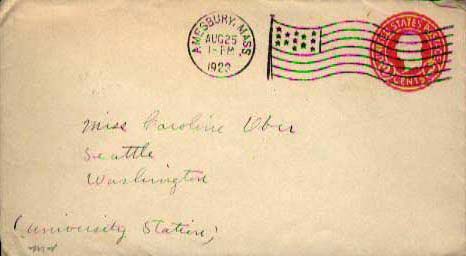 AMESBURY, MASS.
AUG 25
1-PM
1923
UNITED STATES
2 CENTS 2
Miss Caroline Ober
Seattle
Washington
(University Station)